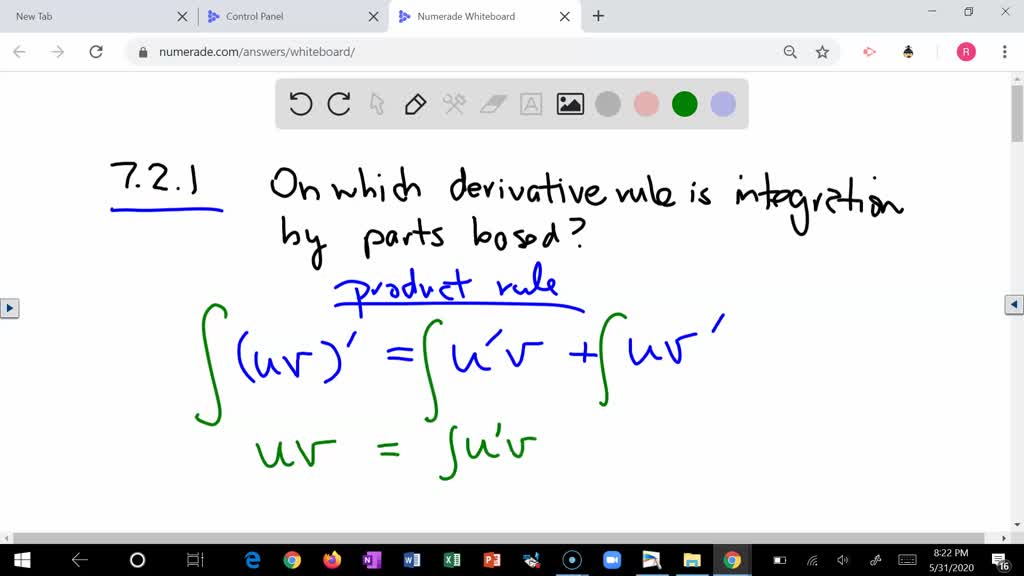 New Tab
Control Panel
Numerade Whiteboard
numerade.com/answers/whiteboard/
R
A
7.2.1 On which derivative rule is integration
by parts based?
product rule
∫(uv)' = ∫u'v + ∫uv'
uv = ∫u'v
8:22 PM
5/31/2020
16